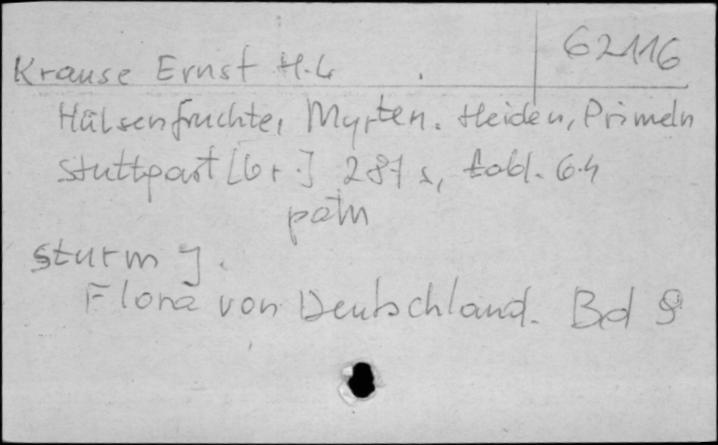 62116
Krause Ernst H.L
Hülsenfruchte, Myrten. Heiden, Primeln
Stuttgart [b r.] 287 s, tabl. 64
patn
Sturm J.
Flora von Deutschland. Bd 9